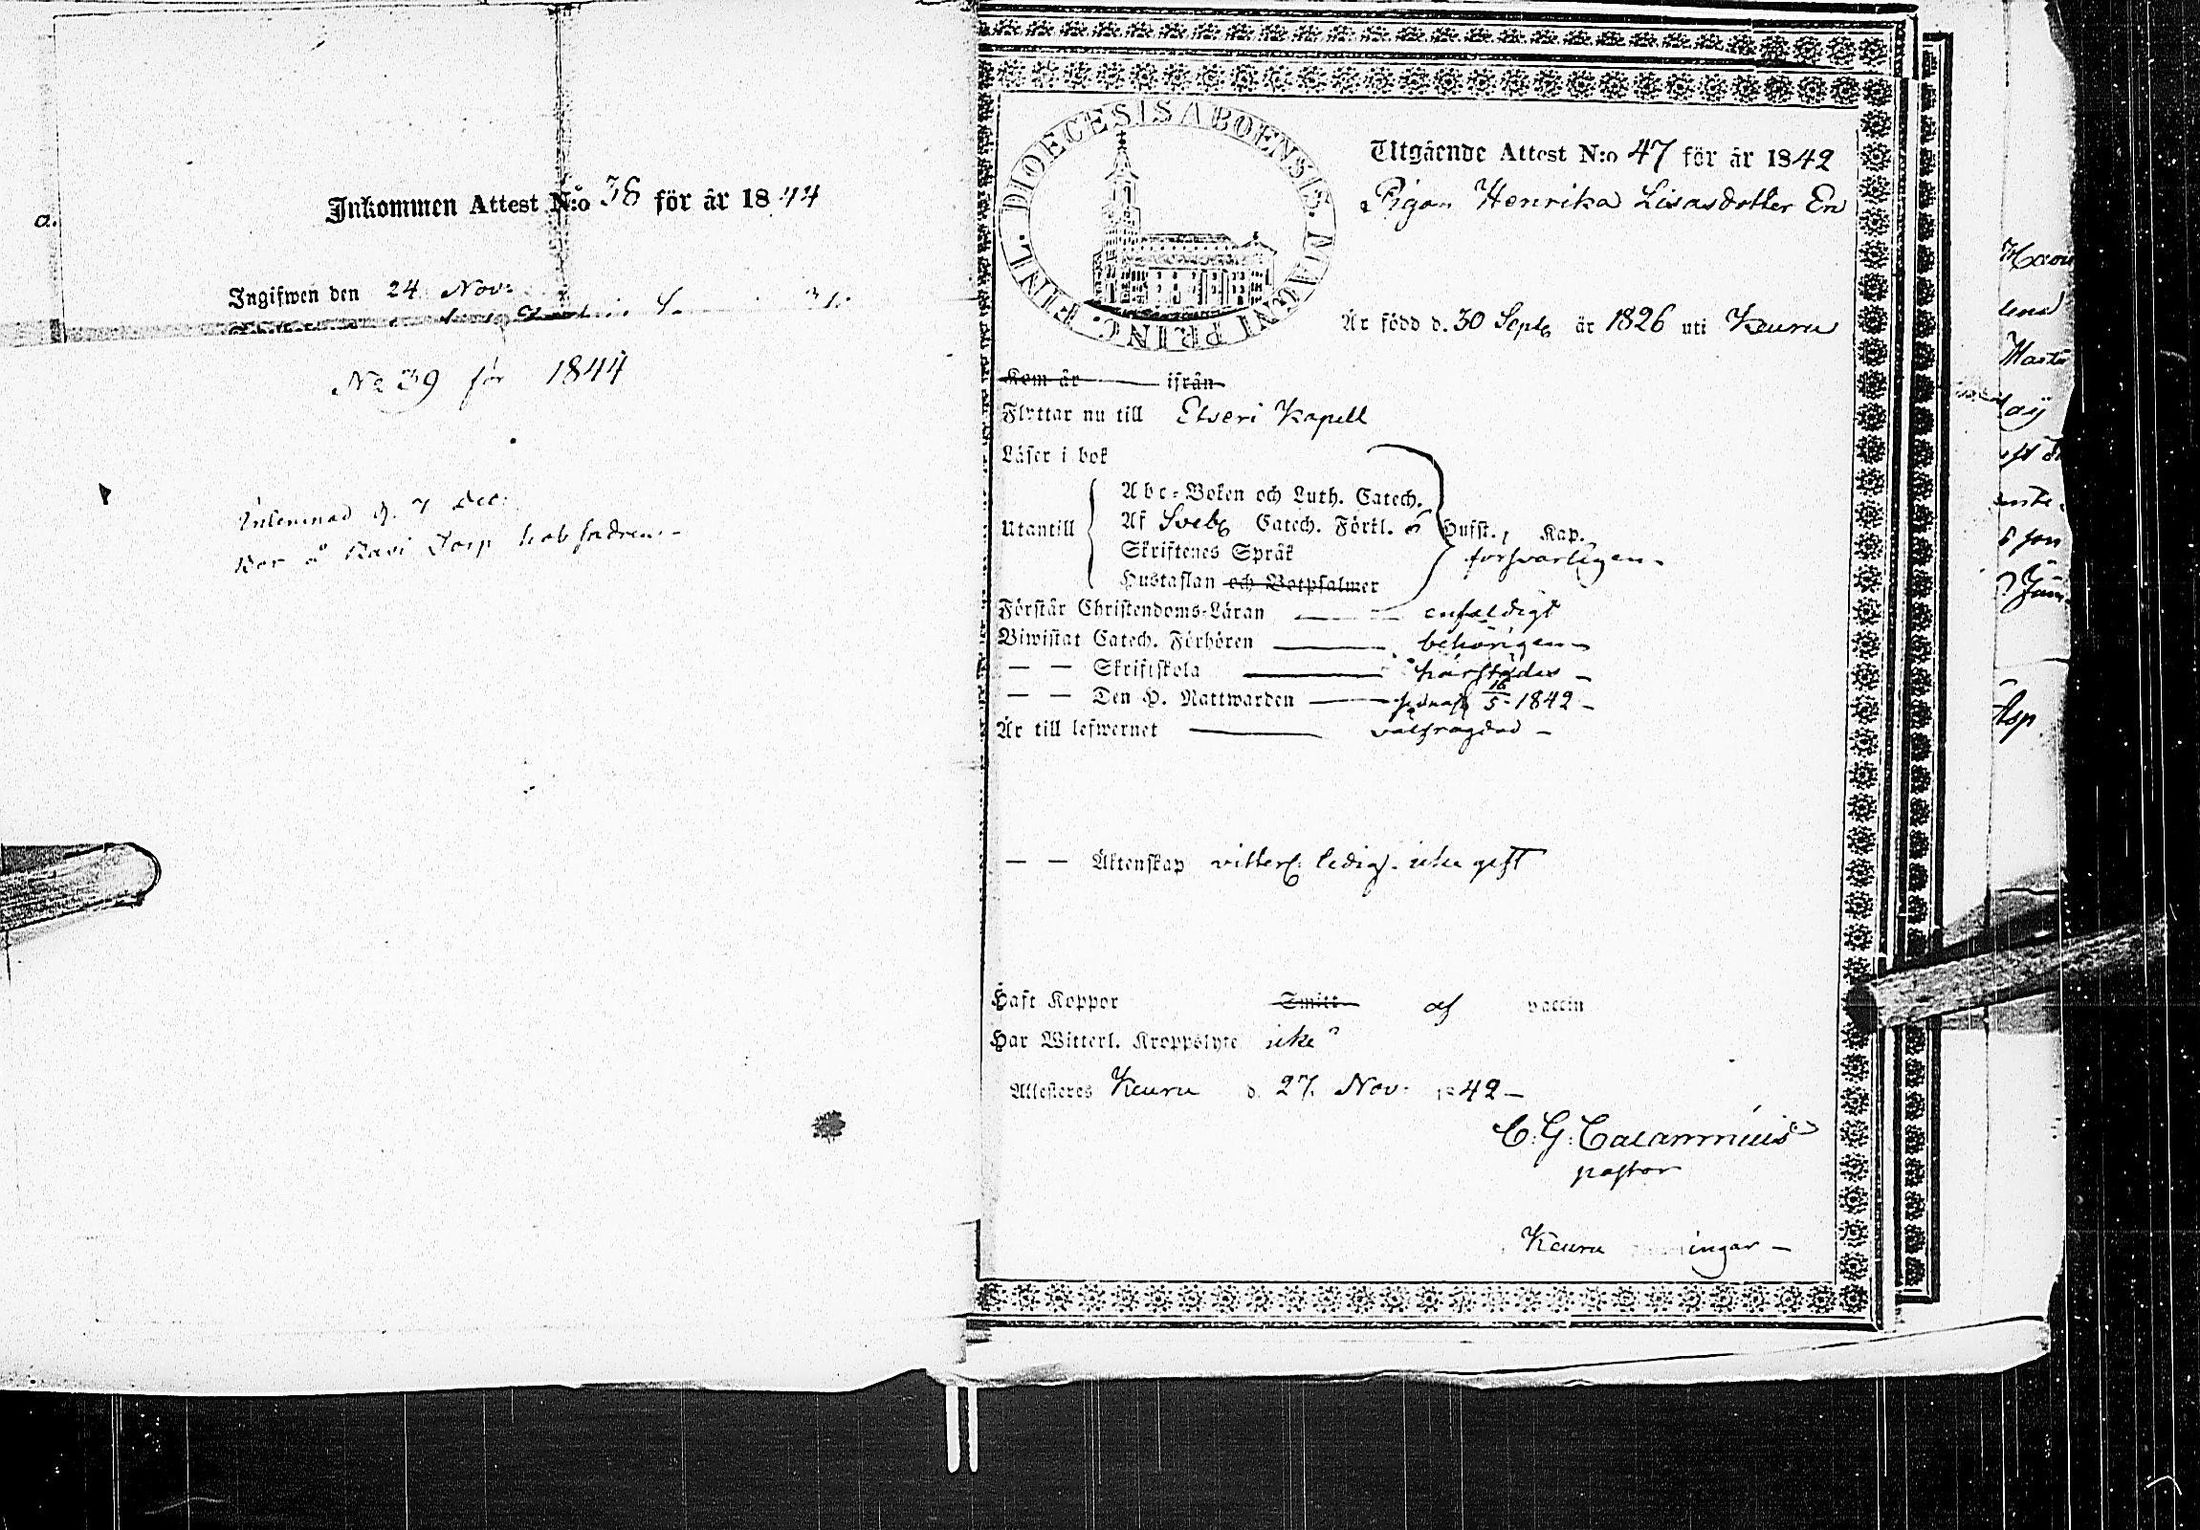 a.
Inkommen Attest N:o 38 för år 1844
Ingifwen den 24 Nov:
No 39 för 1844
Inlemnad d. 7 Dec:
Bor å Torp hos fadren
DIOECESIS ABOENSIS. MAGNI PRINC. FINL.
Utgående Attest N:o 47 för år 1842
Pigan Henrika Lisasdotter En
Är född d. 30 Sept. år 1826 uti Keuru
Kom år ifrån
Flyttar nu till Etseri Kapell
Läser i bok
Utantill
Abc-Boken och Luth. Catech.
Af Sveb. Catech. Förkl. o Hufst., Kap.
Skriftenes Språk
försvarligen
Hustaflan och Botpsalmer
Förstår Christendoms-Läran enfaldigt
Biwistat Catech. Förhören behörigen
— — Skriftskola härstädes
— — Den H. Nattwarden senast 16/5 1842
Är till lefwernet välfrägdad
— — Äktenskap vitterl. ledig. icke gift
Haft Koppor Smitt af vaccin
Har Witterl. Kroppslyte icke
Attesteres Keuru d. 27 Nov: 1842
C. G. Calamnius
pastor
Keuru